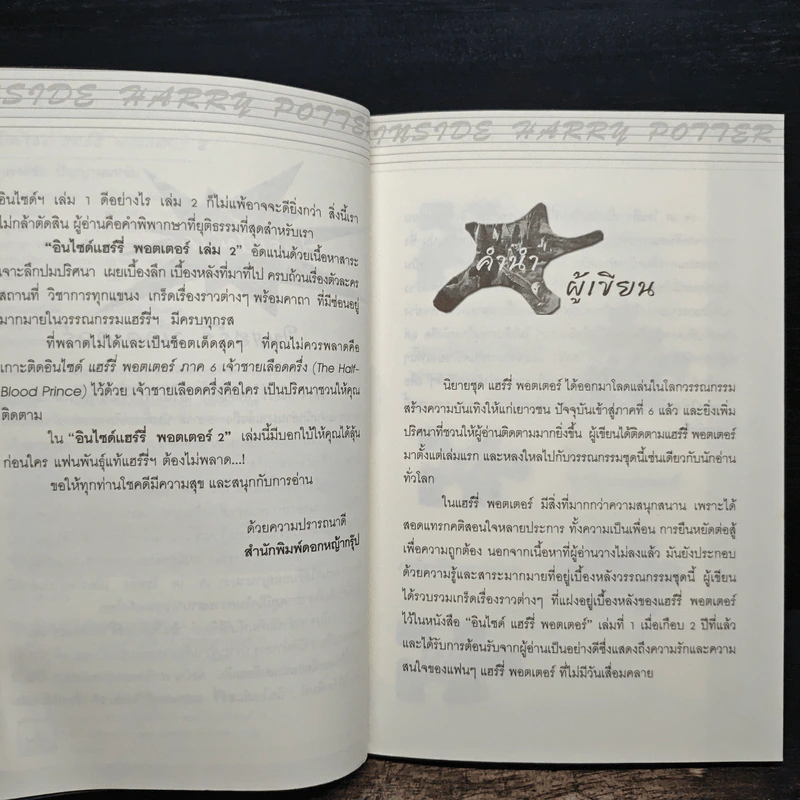 NSIDE HARRY POTTER
อินไซด์ฯ เล่ม 1 ดีอย่างไร เล่ม 2 ก็ไม่แพ้อาจจะดียิ่งกว่า สิ่งนี้เรา
ไม่กล้าตัดสิน ผู้อ่านคือคำพิพากษาที่ยุติธรรมที่สุดสำหรับเรา
“อินไซด์แฮร์รี่ พอตเตอร์ เล่ม 2” อัดแน่นด้วยเนื้อหาสาระ
เจาะลึกปมปริศนา เผยเบื้องลึก เบื้องหลังที่มาที่ไป ครบถ้วนเรื่องตัวละคร
สถานที่ วิชาการทุกแขนง เกร็ดเรื่องราวต่างๆ พร้อมคาถา ที่มีซ่อนอยู่
มากมายในวรรณกรรมแฮร์รี่ฯ มีครบทุกรส
ที่พลาดไม่ได้และเป็นช็อตเด็ดสุดๆ ที่คุณไม่ควรพลาดคือ
เกาะติดอินไซด์ แฮร์รี่ พอตเตอร์ ภาค 6 เจ้าชายเลือดครึ่ง (The Half-
Blood Prince) ไว้ด้วย เจ้าชายเลือดครึ่งคือใคร เป็นปริศนาชวนให้คุณ
ติดตาม
ใน “อินไซด์แฮร์รี่ พอตเตอร์ 2” เล่มนี้มีบอกใบ้ให้คุณได้ลุ้น
ก่อนใคร แฟนพันธุ์แท้แฮร์รี่ฯ ต้องไม่พลาด...!
ขอให้ทุกท่านโชคดีมีความสุข และสนุกกับการอ่าน
ด้วยความปรารถนาดี
สำนักพิมพ์ดอกหญ้ากรุ๊ป
INSIDE HARRY POTTER
คำนำ
ผู้เขียน
นิยายชุด แฮร์รี่ พอตเตอร์ ได้ออกมาโลดแล่นในโลกวรรณกรรม
สร้างความบันเทิงให้แก่เยาวชน ปัจจุบันเข้าสู่ภาคที่ 6 แล้ว และยิ่งเพิ่ม
ปริศนาที่ชวนให้ผู้อ่านติดตามมากยิ่งขึ้น ผู้เขียนได้ติดตามแฮร์รี่ พอตเตอร์
มาตั้งแต่เล่มแรก และหลงใหลไปกับวรรณกรรมชุดนี้เช่นเดียวกับนักอ่าน
ทั่วโลก
ในแฮร์รี่ พอตเตอร์ มีสิ่งที่มากกว่าความสนุกสนาน เพราะได้
สอดแทรกคติสอนใจหลายประการ ทั้งความเป็นเพื่อน การยืนหยัดต่อสู้
เพื่อความถูกต้อง นอกจากเนื้อหาที่ผู้อ่านวางไม่ลงแล้ว มันยังประกอบ
ด้วยความรู้และสาระมากมายที่อยู่เบื้องหลังวรรณกรรมชุดนี้ ผู้เขียน
ได้รวบรวมเกร็ดเรื่องราวต่างๆ ที่แฝงอยู่เบื้องหลังของแฮร์รี่ พอตเตอร์
ไว้ในหนังสือ “อินไซด์ แฮร์รี่ พอตเตอร์” เล่มที่ 1 เมื่อเกือบ 2 ปีที่แล้ว
และได้รับการต้อนรับจากผู้อ่านเป็นอย่างดีซึ่งแสดงถึงความรักและความ
สนใจของแฟนๆ แฮร์รี่ พอตเตอร์ ที่ไม่มีวันเสื่อมคลาย